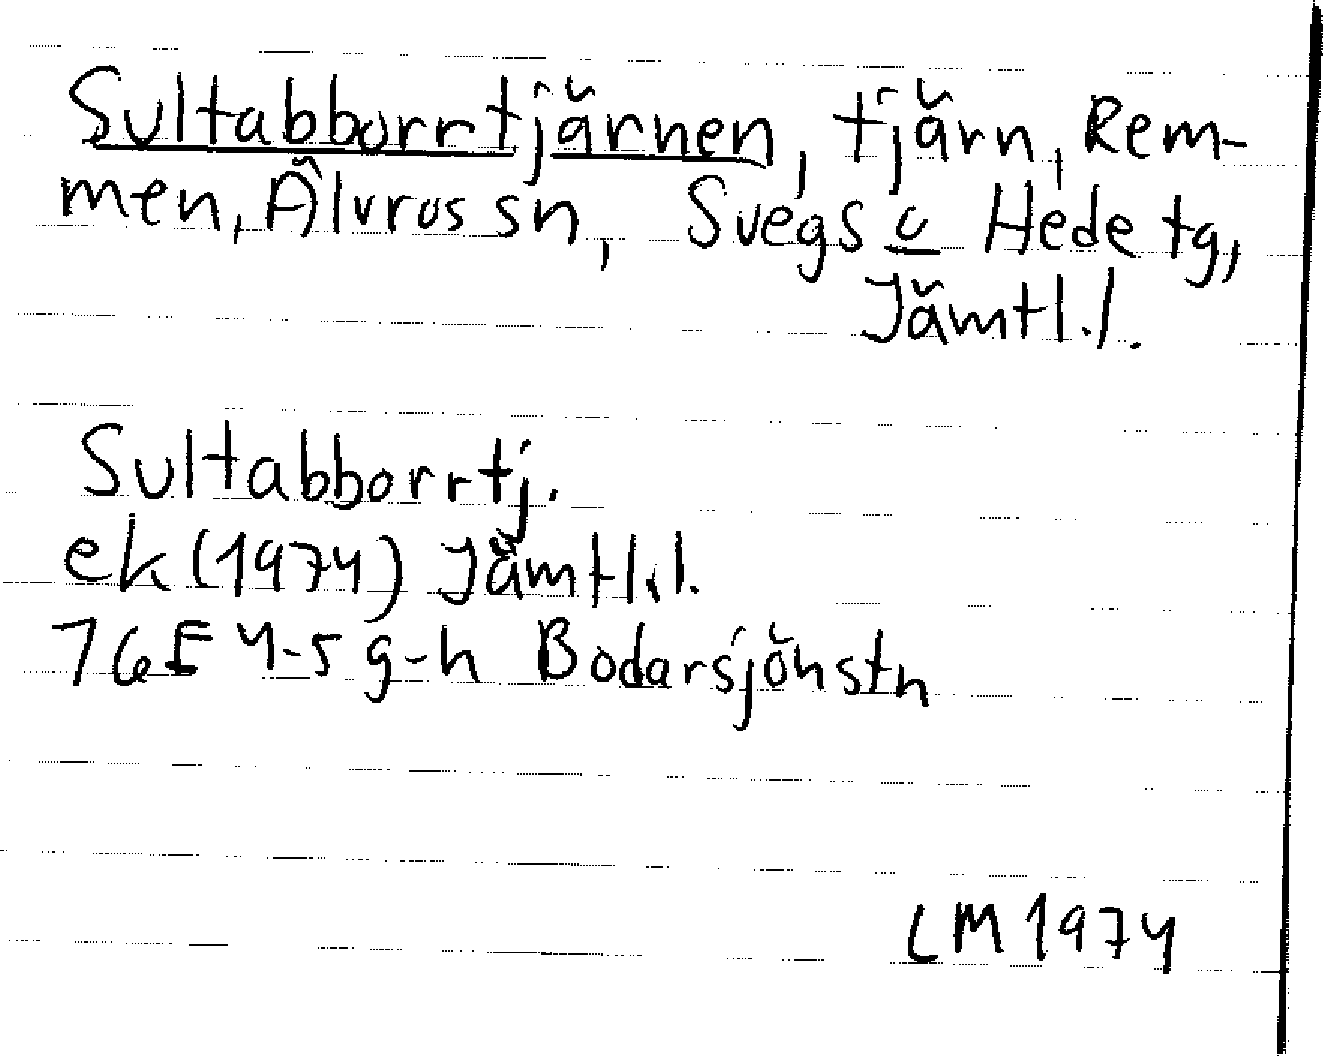 Sultabborrtjärnen, tjärn, Rem-
men, Älvros sn, Svegs o Hede tg,
Jämtl.l.
Sultabborrtj.
ek (1974) Jämtl.l.
16E 4-5 g-h Bodarsjöhstn
LM 1974